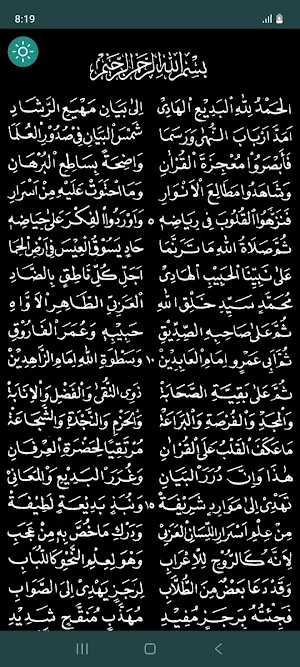 8:19
بِسْمِ اللهِ الرَّحْمَنِ الرَّحِيمِ
الحَمْدُ لِلّهِ الْبَدِيعِ الْهَادِي إِلَى بَيَانِ مَهْيَعِ الرَّشَادِ
أَمَدَّ أَرْبَابَ النُّهَى وَرَسَمَا شَمْسَ الْبَيَانِ فِي صُدُورِ الْعُلَمَا
فَأَبْصَرُوا مُعْجِزَةَ الْقُرْآنِ وَاضِحَةً بِسَاطِعِ الْبُرْهَانِ
وَشَاهَدُوا مَطَالِعَ الْأَنْوَارِ وَمَا احْتَوَتْ عَلَيْهِ مِنْ أَسْرَارِ
فَنَزَّهُوا الْقُلُوبَ فِي رِيَاضِهِ ٥ وَأَوْرَدُوا الْفِكْرَ عَلَى حِيَاضِهِ
ثُمَّ صَلَاةُ اللهِ مَا تَرَنَّمَا حَادٍ يَسُوقُ الْعِيسَ فِي أَرْضِ الْحِمَا
عَلَى نَبِيِّنَا الْحَبِيبِ الْهَادِي أَجَلِّ كُلِّ نَاطِقٍ بِالضَّادِ
مُحَمَّدٍ سَيِّدِ خَلْقِ اللهِ الْعَرَبِيِّ الطَّاهِرِ الْأَوَّاهِ
ثُمَّ عَلَى صَاحِبِهِ الصِّدِّيقِ حَبِيبِهِ وَعُمَرَ الْفَارُوقِ
ثُمَّ أَبِي عَمْرٍو إِمَامِ الْعَابِدِينَ ١٠ وَسَطْوَةِ اللهِ إِمَامِ الزَّاهِدِينَ
ثُمَّ عَلَى بَقِيَّةِ الصَّحَابَةِ ذَوِي التُّقَى وَالْفَضْلِ وَالْإِنَابَةِ
وَالْمَجْدِ وَالْفُرْصَةِ وَالْبَرَاعَةِ وَالْحَزْمِ وَالنَّجْدَةِ وَالشَّجَاعَةِ
مَا عَكَفَ الْقَلْبُ عَلَى الْقُرْآنِ مُرْتَقِيًا لِحَضْرَةِ الْعِرْفَانِ
هَذَا وَإِنَّ دُرَرَ الْبَيَانِ وَغُرَرَ الْبَدِيعِ وَالْمَعَانِي
تَهْدِي إِلَى مَوَارِدٍ شَرِيفَةْ ١٥ وَنُبَذٍ بَدِيعَةٍ لَطِيفَةْ
مِنْ عِلْمِ أَسْرَارِ اللِّسَانِ الْعَرَبِي وَدَرْكِ مَا خُصَّ بِهِ مِنْ عَجَبِ
لِأَنَّهُ كَالرُّوحِ لِلْإِعْرَابِ وَهْوَ لِعِلْمِ النَّحْوِ كَاللُّبَابِ
وَقَدْ دَعَا بَعْضٌ مِنَ الطُّلَّابِ لِرَجَزٍ يَهْدِي إِلَى الصَّوَابِ
فَجِئْتُهُ بِرَجَزٍ مُفِيدِ مُهَذَّبٍ مُنَقَّحٍ سَدِيدِ